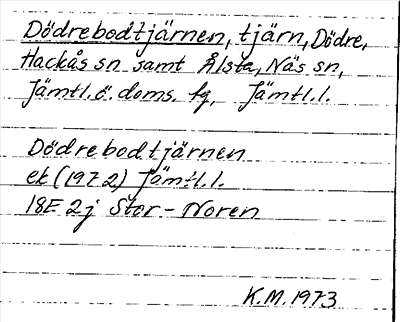 Dödrebodtjärnen, tjärn, Dödre,
Hackås sn samt Ålsta, Näs sn,
Jämtl. ö. doms. fg, Jämtl. l.
Dödrebodtjärnen
ek (1972) Jämtl. l.
18E 2j Stor-Noren
K.M. 1973